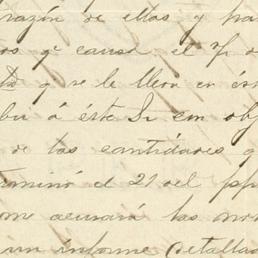 razón de ellas y pa
os qe causa el
qe se le lleva en és
á éste Sr con obj
de las cantidades q
terminó el 21 del ppd
me acusará las
un informe detallad